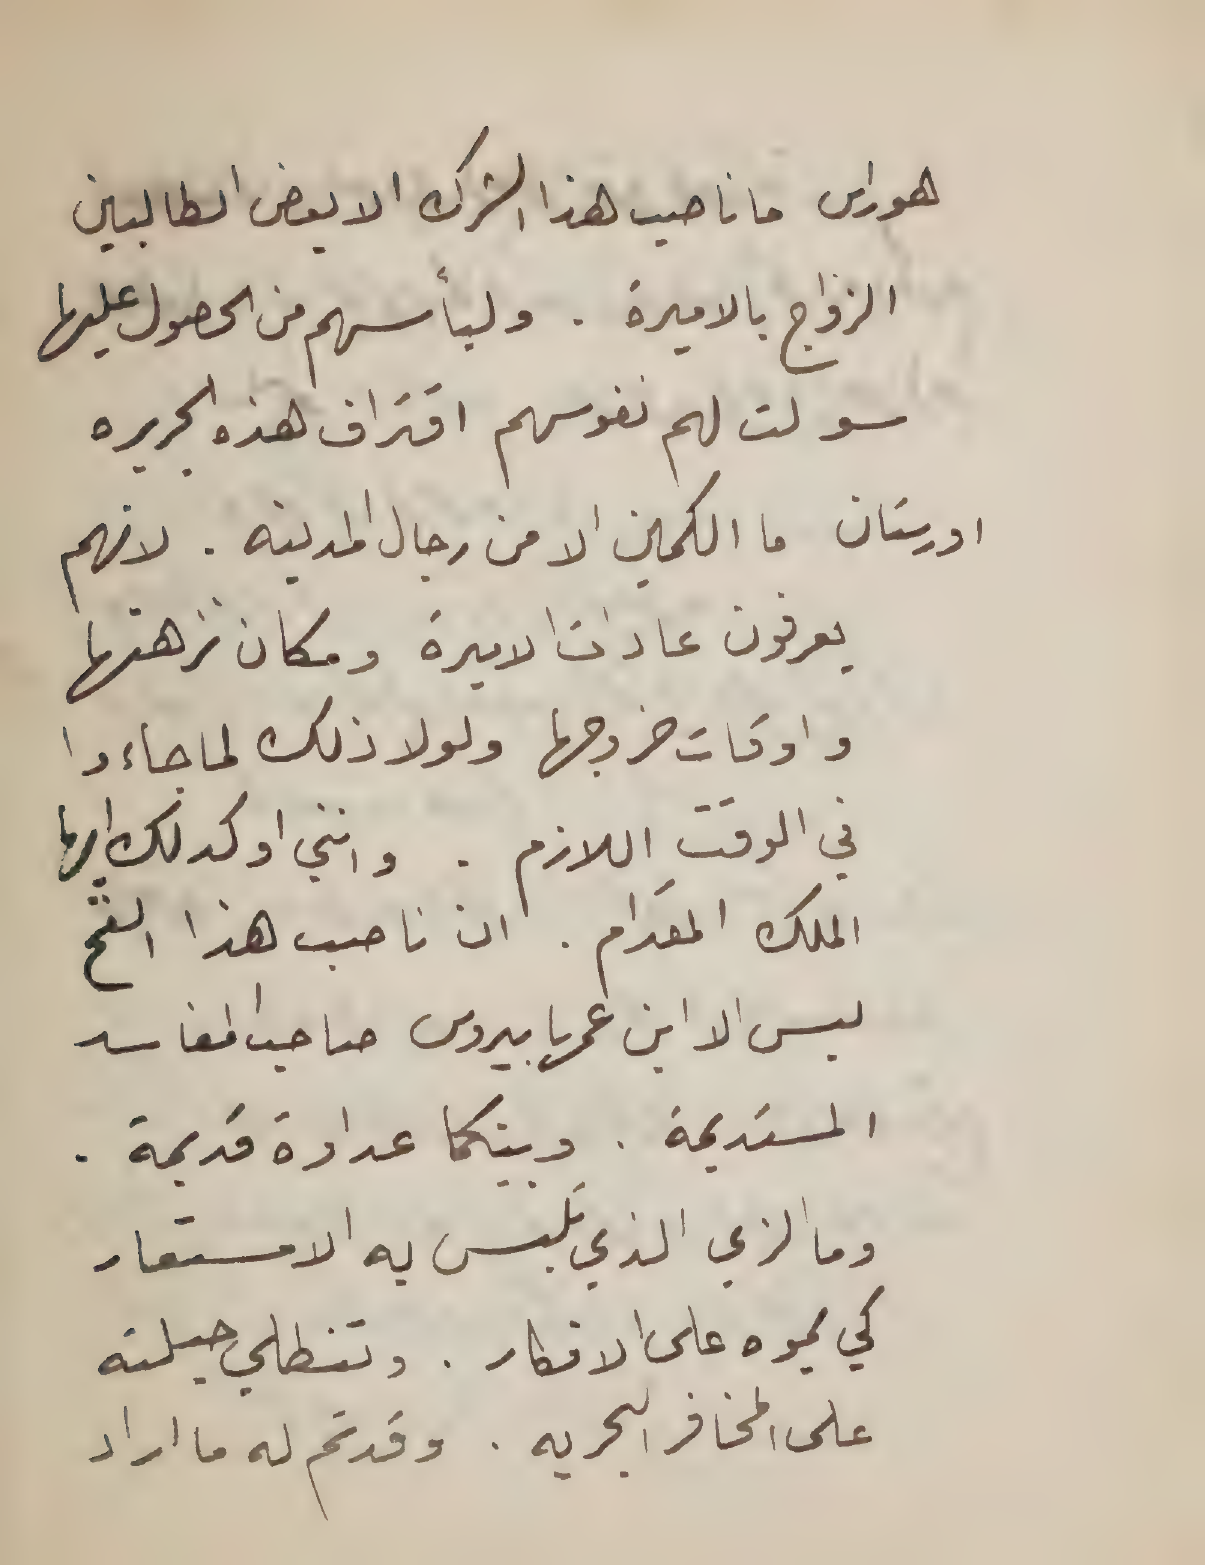 هوراس ما ناصب هذا الشرك الا بعض الطالبين
الزواج بالاميرة . وليأسهم من الحصول عليها
سولت لهم نفوسهم اقتراف هذه الجريره
اورستان ما الكمين الا من رجال المدينه . لانهم
يعرفون عادات الاميرة ومكان نزهتها
واوقات خروجها ولولا ذلك لما جاءوا
في الوقت اللازم . وانني اوكد لك ايها
الملك المقدام . ان ناصب هذا الفخ
ليس الا ابن عمر بابيروس صاحب المفاسد
المستديمة . وبينكما عداوة قديمة .
وما الزي الذي تلبس به الا مستعار
كي يموه على الافكار . وتنطلي حيلته
على المخافر البحريه . وقد تم له ما اراد